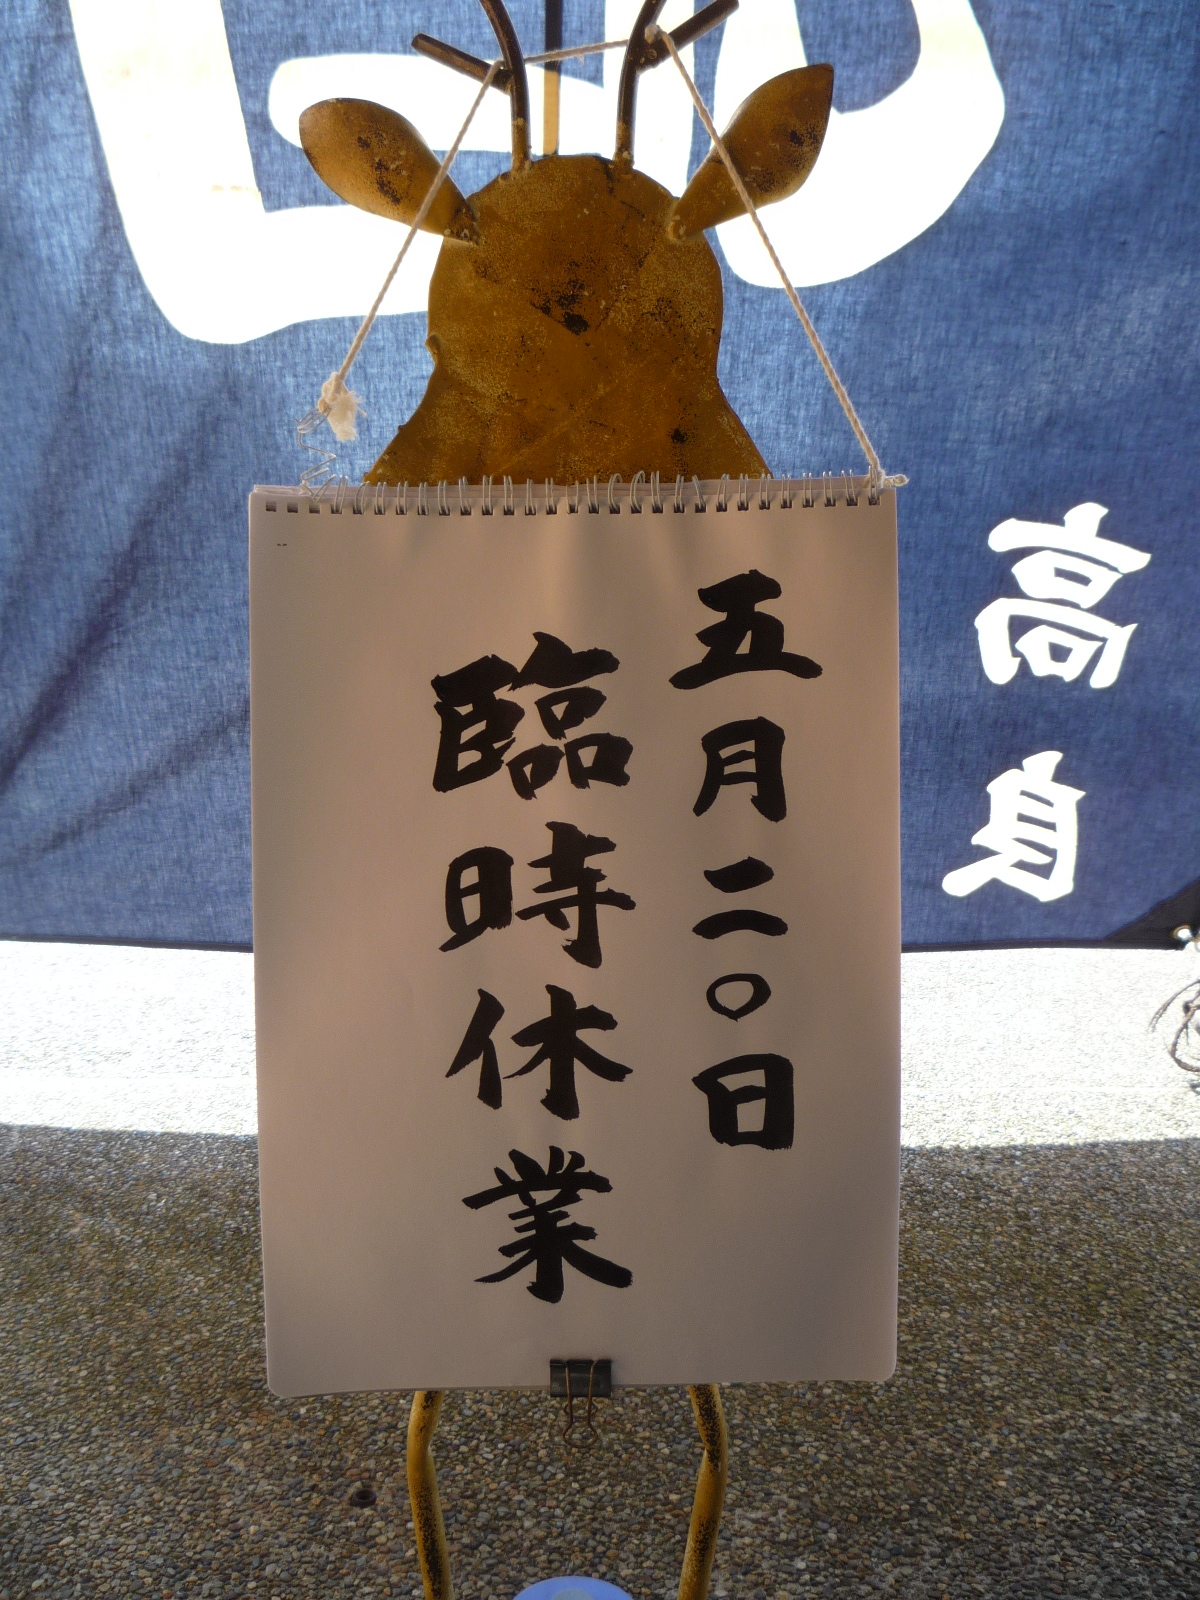 五月二〇日
臨時休業
高良